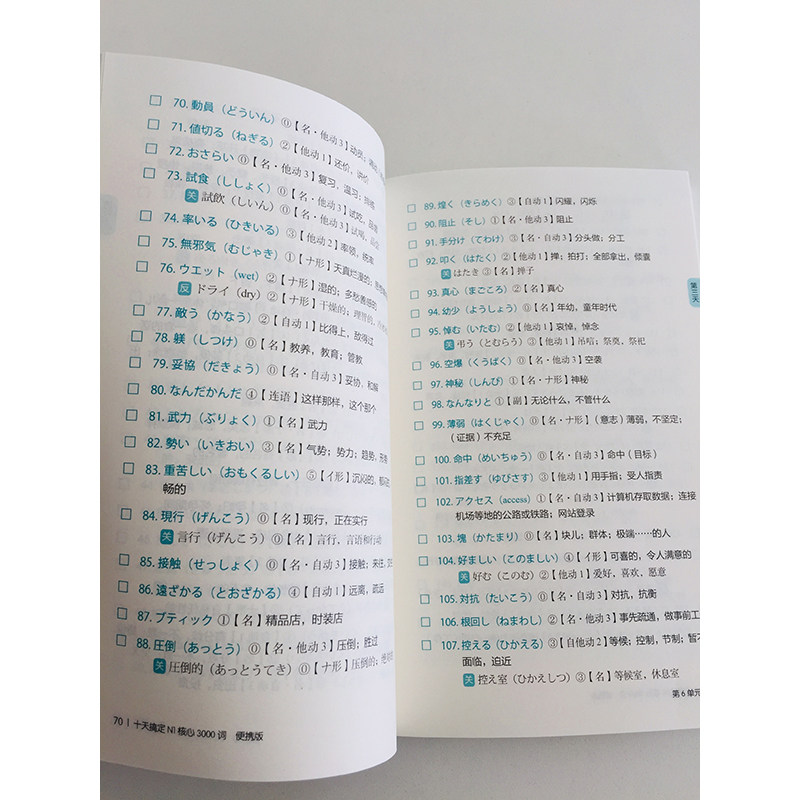 70. 動員（どういん）⓪【名・他动3】动员；
71. 値切る（ねぎる）②【他动1】还价，讲价
72. おさらい ⓪【名・他动3】复习，温习；
73. 試食（ししょく）⓪【名・他动3】试吃，
关 試飲（しいん）⓪【名・他动3】试喝，
74. 率いる（ひきいる）③【他动2】率领，
75. 無邪気（むじゃき）①【ナ形】天真烂漫的；
76. ウエット（wet）②【ナ形】湿的；多愁善感的
反 ドライ（dry）②【ナ形】干燥的；理智的，
77. 敵う（かなう）②【自动1】比得上，敌得过
78. 躾（しつけ）⓪【名】教养，教育；管教
79. 妥協（だきょう）⓪【名・自动3】妥协，和解
80. なんだかんだ ④【连语】这样那样，这个那个
81. 武力（ぶりょく）①【名】武力
82. 勢い（いきおい）③【名】气势；势力；趋势，
83. 重苦しい（おもくるしい）⑤【イ形】沉闷的，
畅的
84. 現行（げんこう）⓪【名】现行，正在实行
关 言行（げんこう）⓪【名】言行，言语和行动
85. 接触（せっしょく）⓪【名・自动3】接触；来往，
86. 遠ざかる（とおざかる）④【自动1】远离，疏远
87. ブティック ①【名】精品店，时装店
88. 圧倒（あっとう）⓪【名・他动3】压倒；胜过
关 圧倒的（あっとうてき）⓪【ナ形】压倒的；
70 | 十天搞定N1核心3000词 便携版
89. 煌く（きらめく）③【自动1】闪耀，闪烁
90. 阻止（そし）①【名・他动3】阻止
91. 手分け（てわけ）③【名・自动3】分头做；分工
92. 叩く（はたく）②【他动1】掸；拍打；全部拿出，倾囊
关 はたき ③【名】掸子
93. 真心（まごころ）②【名】真心
94. 幼少（ようしょう）⓪【名】年幼，童年时代
95. 悼む（いたむ）②【他动1】哀悼，悼念
关 弔う（とむらう）③【他动1】吊唁；祭奠，祭祀
96. 空爆（くうばく）⓪【名・他动3】空袭
97. 神秘（しんぴ）①【名・ナ形】神秘
98. なんなりと ①【副】无论什么，不管什么
99. 薄弱（はくじゃく）⓪【名・ナ形】（意志）薄弱，不坚定；
（证据）不充足
100. 命中（めいちゅう）⓪【名・自动3】命中（目标）
101. 指差す（ゆびさす）③【他动1】用手指；受人指责
102. アクセス（access）①【名・自动3】计算机存取数据；连接
机场等地的公路或铁路；网站登录
103. 塊（かたまり）⓪【名】块儿；群体；极端……的人
104. 好ましい（このましい）④【イ形】可喜的，令人满意的
关 好む（このむ）②【他动1】爱好，喜欢，愿意
105. 対抗（たいこう）⓪【名・自动3】对抗，抗衡
106. 根回し（ねまわし）②【名・他动3】事先疏通，做事前工
107. 控える（ひかえる）③【自他动2】等候；控制，节制；暂不
面临，迫近
关 控え室（ひかえしつ）③【名】等候室，休息室
第三天
第6单元